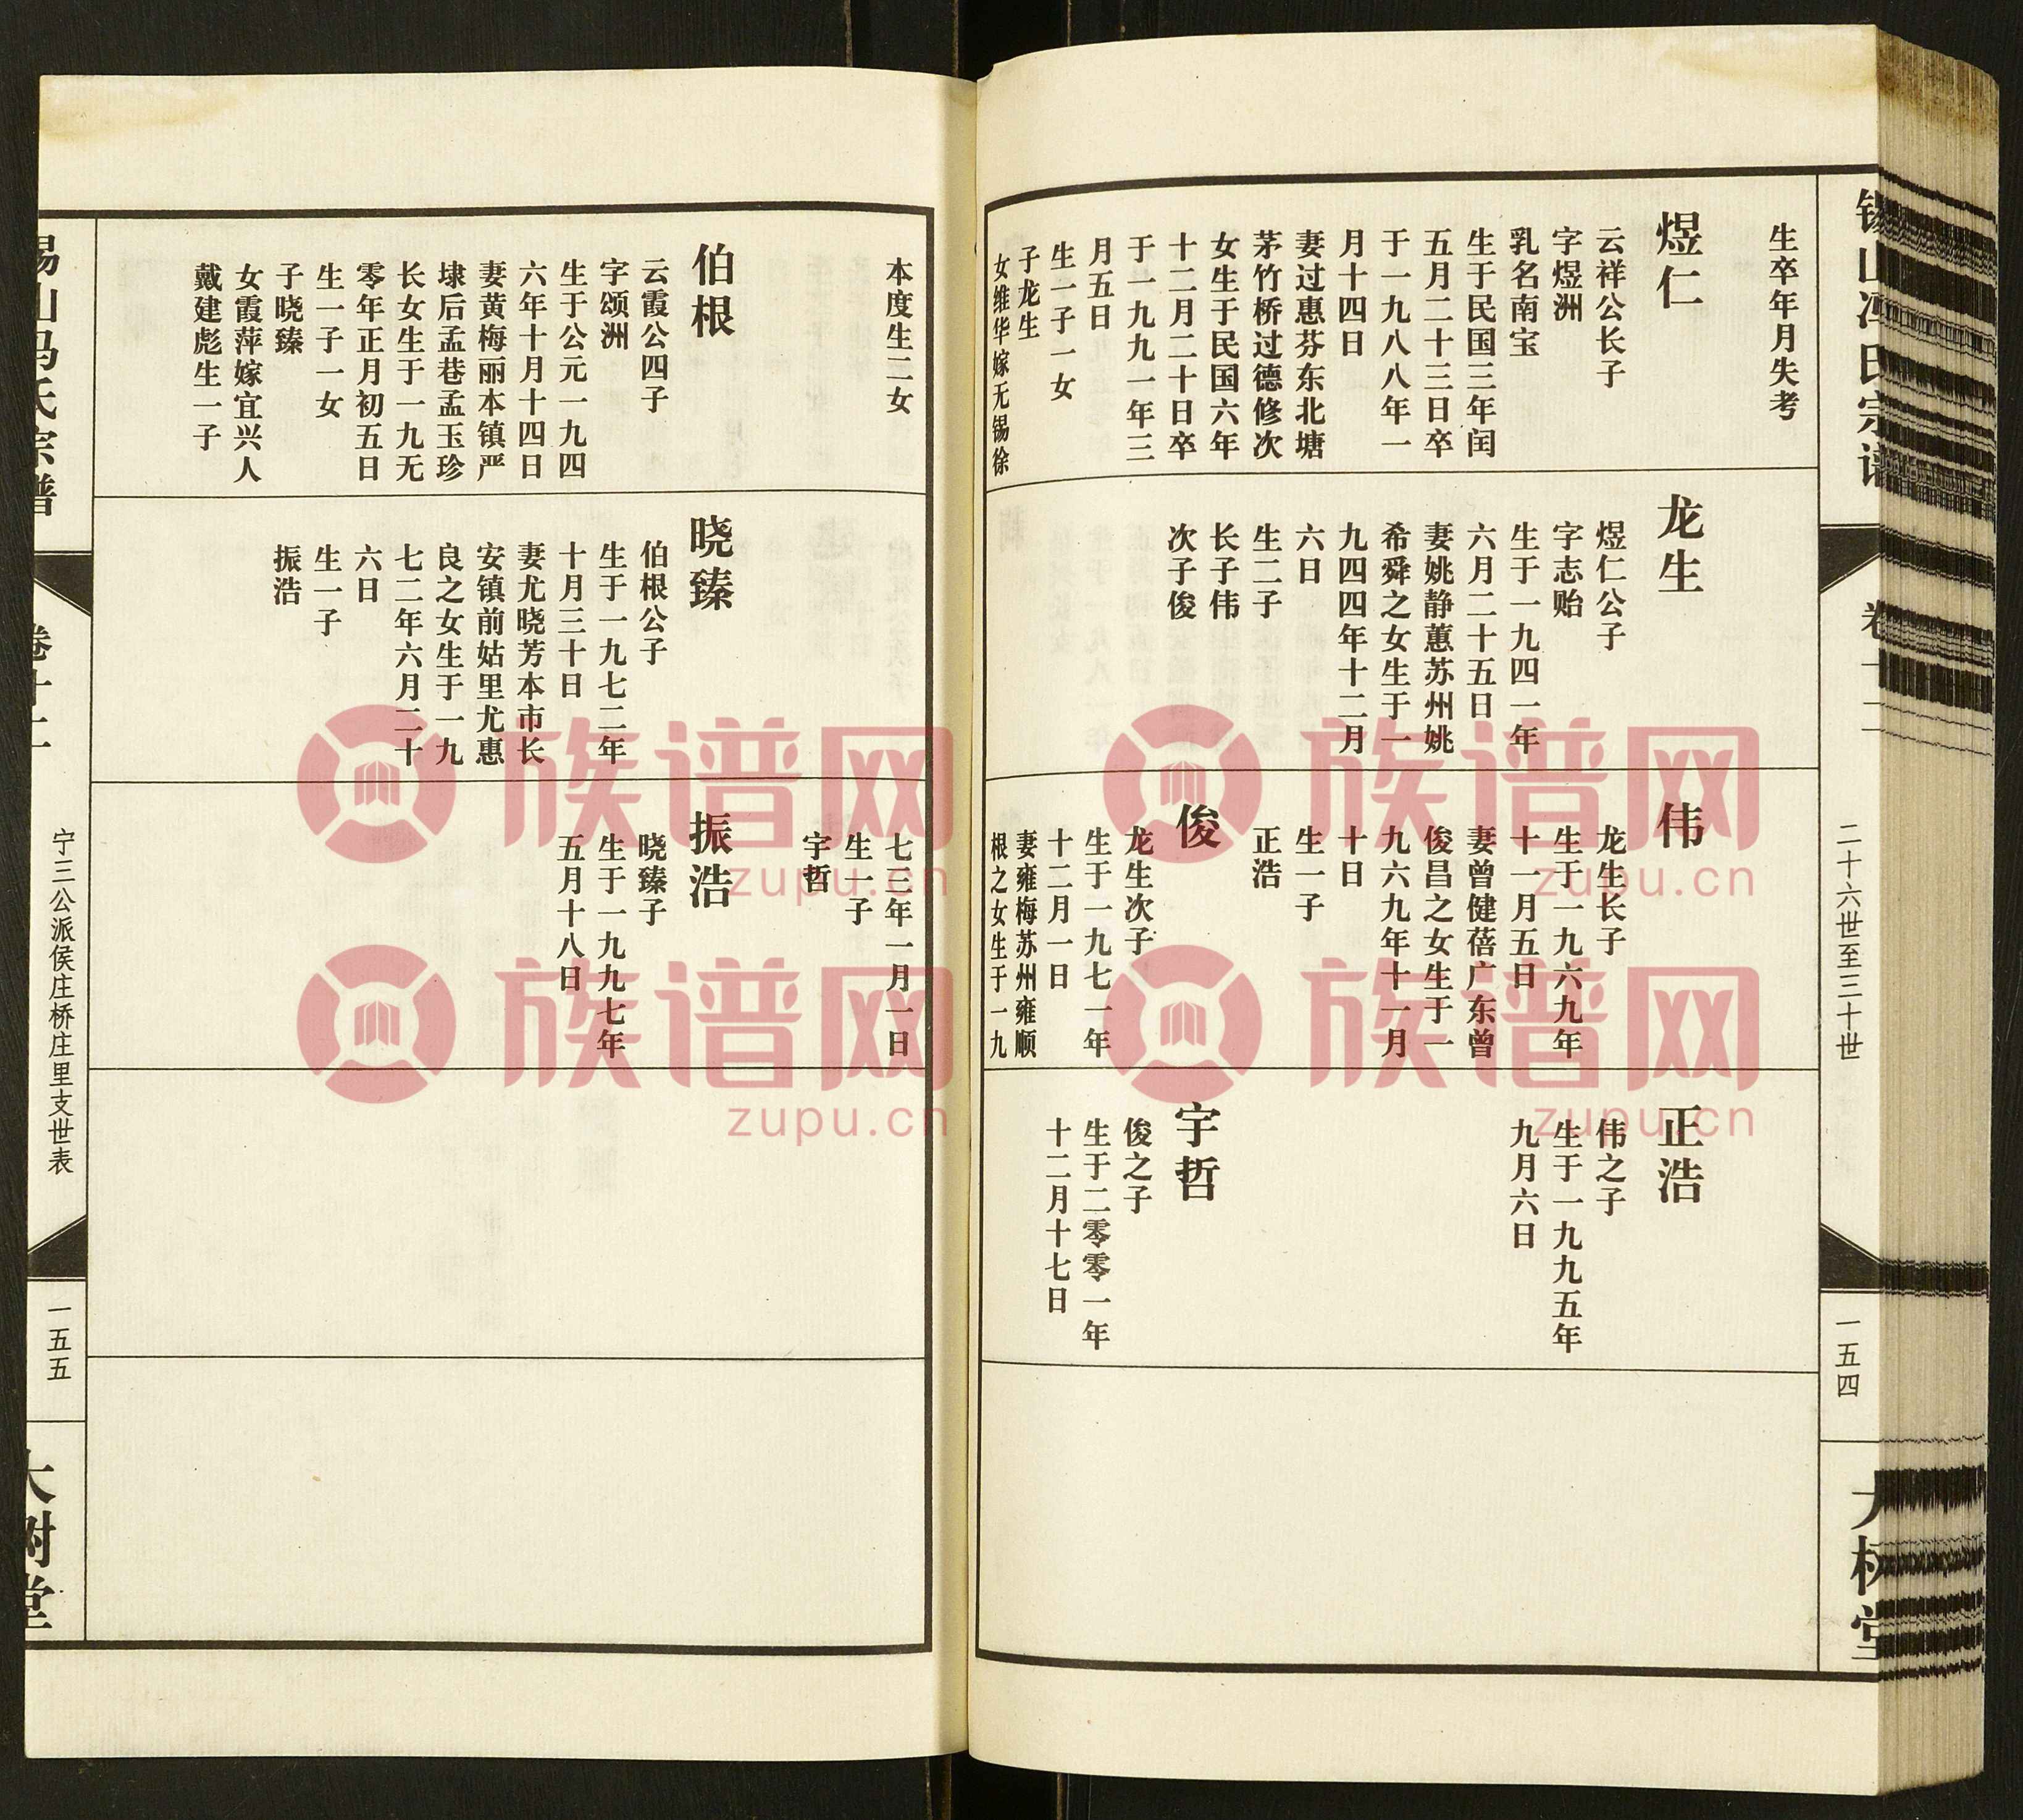 锡山冯氏宗谱
卷十二
二十六世至三十世
一五四
大树堂
生卒年月失考
煜仁
云祥公长子
字煜洲
乳名南宝
生于民国三年闰
五月二十三日卒
于一九八八年一
月十四日
妻过惠芬东北塘
茅竹桥过德修次
女生于民国六年
十二月二十日卒
于一九九一年三
月五日
生一子一女
子龙生
女维华嫁无锡徐
龙生
煜仁公子
字志贻
生于一九四一年
六月二十五日
妻姚静蕙苏州姚
希舜之女生于一
九四四年十二月
六日
生二子
长子伟
次子俊
伟
龙生长子
生于一九六九年
十一月五日
妻曾健蓓广东曾
俊昌之女生于一
九六九年十一月
十日
生一子
正浩
俊
龙生次子
生于一九七一年
十二月一日
妻雍梅苏州雍顺
根之女生于一九
正浩
伟之子
生于一九九五年
九月六日
宇哲
俊之子
生于二零零一年
十二月十七日
本度生二女
伯根
云霞公四子
字颂洲
生于公元一九四
六年十月十四日
妻黄梅丽本镇严
埭后孟巷孟玉珍
长女生于一九无
零年正月初五日
生一子一女
子晓臻
女霞萍嫁宜兴人
戴建彪生一子
晓臻
伯根公子
生于一九七二年
十月三十日
妻尤晓芳本市长
安镇前姑里尤惠
良之女生于一九
七二年六月二十
六日
生一子
振浩
七三年一月一日
生一子
宇哲
振浩
晓臻子
生于一九九七年
五月十八日
锡山冯氏宗谱
卷十二
宁三公派侯庄桥庄里支世表
一五五
大树堂
族谱网
zupu.cn
族谱网
zupu.cn
族谱网
zupu.cn
族谱网
zupu.cn